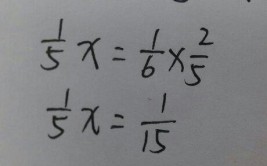 1/5 x = 1/6 × 2/5
1/5 x = 1/15